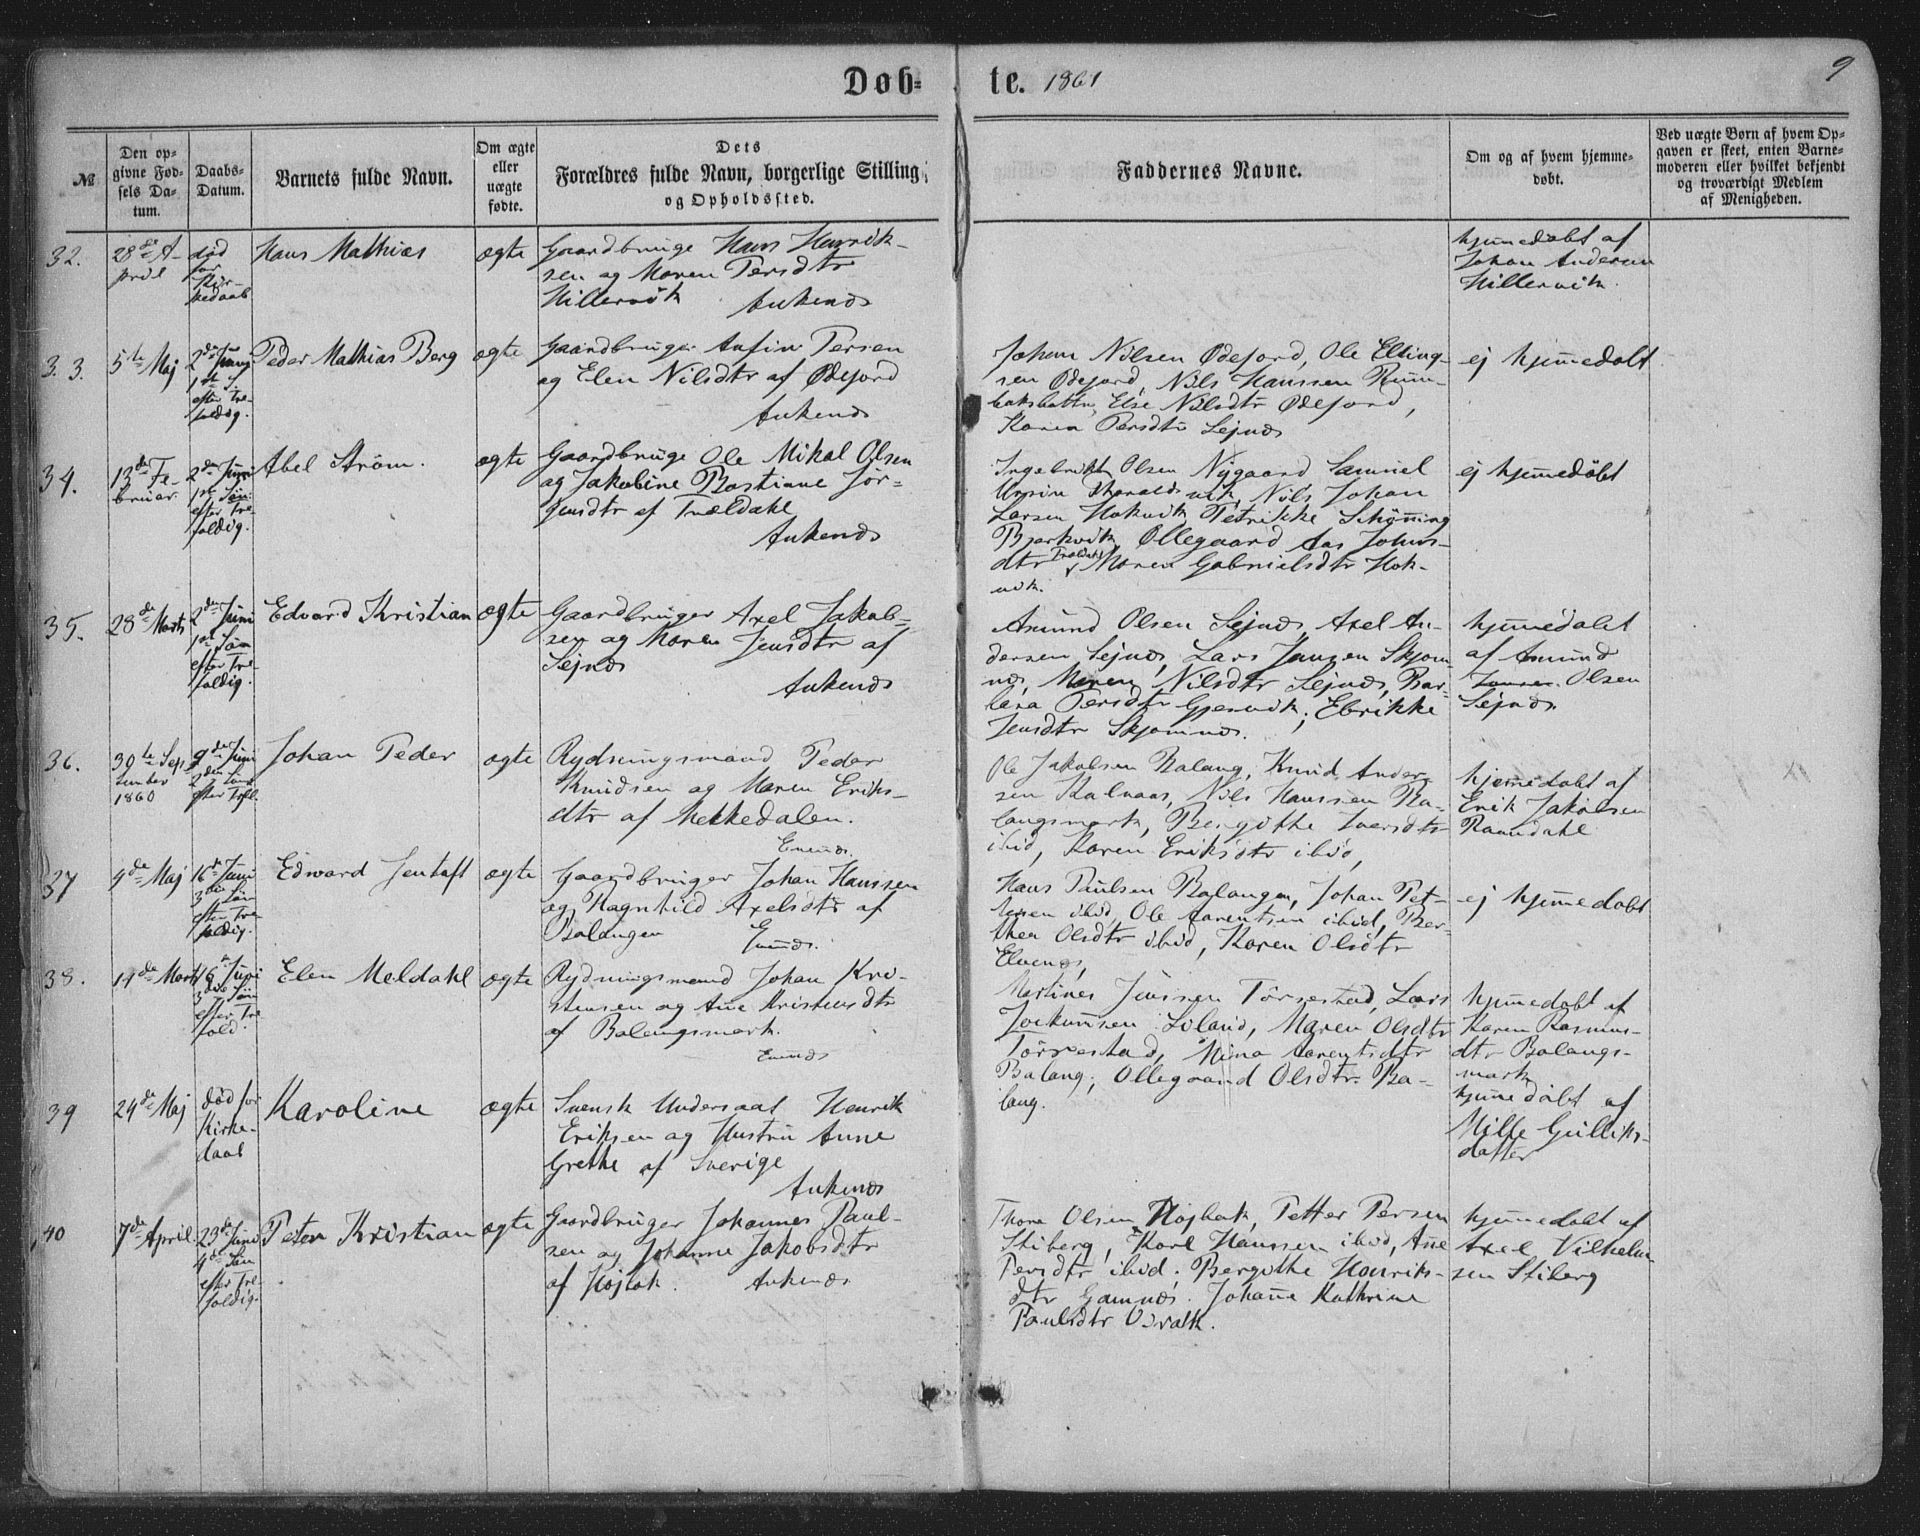 Døb- te. 1861
9
№
Den op-
givne Fød-
sels Da-
tum.
Daabs-
Datum.
Barnets fulde Navn.
Om ægte
eller
uægte
fødte.
Dets
Forældres fulde Navn, borgerlige Stilling
og Opholdssted.
Faddernes Navne.
Om og af hvem hjemme-
døbt.
Ved uægte Børn af hvem Op-
gaven er skeet, enten Barne-
moderen eller hvilket bekjendt
og troværdigt Medlem
af Menigheden.
32.
28de A-
pril
død
for
Kir-
kedaab
Hans Mathias
ægte
Gaardbruge Hans Henrik-
sen og Maren Persdtr
Hillervik Ankenæs
hjemedøbt af
Johan Andersen
Hillervik.
33.
5te Maj
2den Juni
1st S
efter Tre-
foldig.
Peder Mathias Berg
ægte
Gaardbruger Anfin Persen
og Elen Nilsdtr af Ødefjord
Ankenæs
Johan Nilsen Ødefjord, Ole Elling-
sen Ødejord, Nils Hanssen Rum-
baksbottn, Else Nilsdtr Ødefjord,
Karen Persdtr Sejnæs
ej hjemedøbt
34.
13de Fe-
bruar.
2den Juni
1st Søn
efter Tre-
foldig.
Abel Strøm.
ægte
Gaardbruge Ole Mikal Olsen
og Jakobine Bastiane Jør-
gensdtr af Trældahl
Ankenæs
Ingebrikt Olsen Nygaard Samuel
Ursin Haraldsvik, Nils Johan
Larsen Hakvik, Petrikke Schønning
Bjerkvik, Ollegaard Aas Johns-
dtr Trældahl, Maren Gabrielsdtr Hak-
vik.
ej hjemedøbt
35.
28de Marts
2den Juni
1st Søn
efter Tre-
foldig.
Edvard Kristian
ægte
Gaardbruger Axel Jakob-
sen og Maren Jensdtr af
Sejnæs
Ankenæs
Amund Olsen Sejnæs, Axel An-
dersen Sejnæs, Lars Jansen Skjom-
næs, Maren Nilsdtr Sejnæs, Bar-
bara Persdtr Gjervik, Ebrikke
Jensdtr Skjomnæs.
hjemedøbt
af Amund
Jansen Olsen
Sejnæs
36.
30te Sep-
tember
1860
9de Juni
2den Søn
efter Trefl.
Johan Peder
ægte
Rydningsmand Peder
Knudsen og Maren Eriks-
dtr af Melkedalen.
Evenæs.
Ole Jakobsen Balang, Knud Ander-
sen Kalvaas, Nils Hanssen Ba-
langsmark, Bergitthe Iversdtr
ibid, Karen Eriksdtr ibid,
hjemedøbt af
Erik Jakobsen
Ravndahl
37
9de Maj
16de Juni
3die Søn
efter Tre-
foldig.
Edward Jentoft
ægte
Gaardbruger Johan Hanssen
og Ragnhild Axelsdtr af
Balangen Evenæs.
Hans Paulsen Balangen, Johan Pet-
tersen ibid, Ole Aarentsen ibid, Ber-
thea Olsdtr ibid, Karen Olsdtr
Elvenæs,
ej hjemedøbt
38.
14de Marts
16de Juni
3die Søn
efter Tre-
fold.
Elen Meldahl
ægte
Rydningsmand Johan Kri-
stensen og Ane Kristensdtr
af Balangsmark.
Evenæs
Martines Jenssen Tørrestad, Lars
Jockumsen Liland, Maren Olsdtr
Tørrestad, Nina Aarentsdtr
Balang, Ollegaard Olsdtr. Ba-
lang.
hjemedøbt af
Karen Rasmus-
dtr Balangs-
mark
39
24de Maj
død for
Kirke-
daab
Karoline
ægte
Svensk Undersaat Henrik
Eriksen og Hustru Anne
Grethe af Sverige
Ankenæs
hjemedøbt af
Nille Gulliks-
datter
40
7de April.
23de Juni
4de Søn
efter Tre-
foldig.
Peter Kristian
ægte
Gaardbruger Johannes Paul-
sen og Johanne Jakobsdtr
af Højbak. Ankenæs
Thore Olsen Højbak, Petter Persen
Stiberg, Karl Hanssen ibid, Ane
Persdtr ibid, Bergitthe Henriks-
dtr Gamnæs. Johanne Kathrine
Paulsdtr Osvatn.
hjemedøbt af
Axel Vilhelm-
sen Stiberg